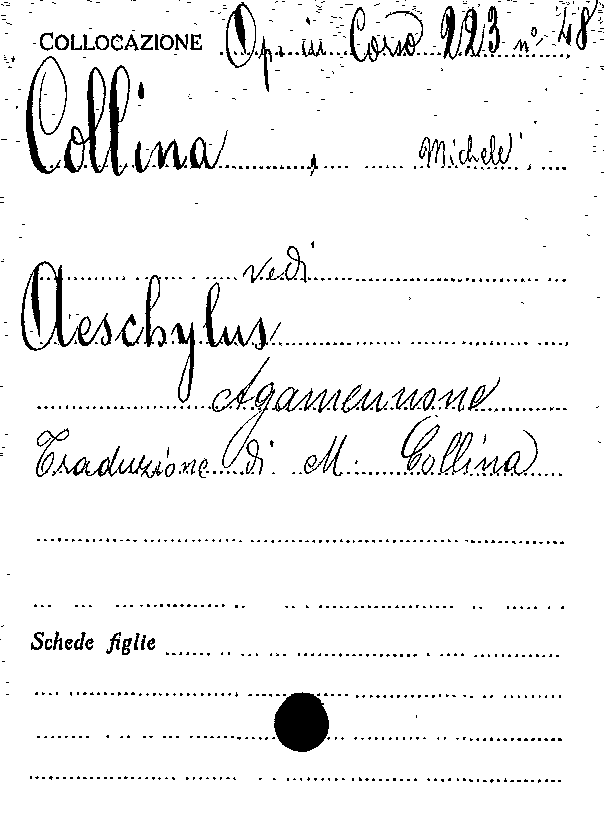 COLLOCAZIONE Op. in Corso 223 n° 48
Collina, Michele
vedi
Aeschylus
Agamennone
Traduzione di M. Collina
Schede figlie